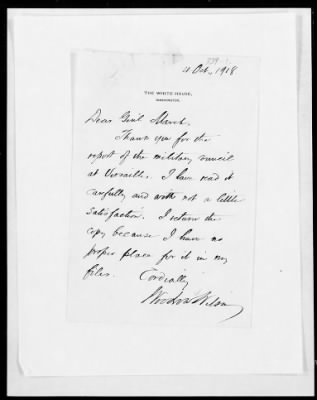 4 Oct., 1918
THE WHITE HOUSE,
WASHINGTON.
Dear Gen'l March,
Thank you for the
report of the military council
at Versailles. I have read it
carefully and with not a little
satisfaction. I return the
copy because I have no
proper place for it in my
files.
Cordially
Woodrow Wilson